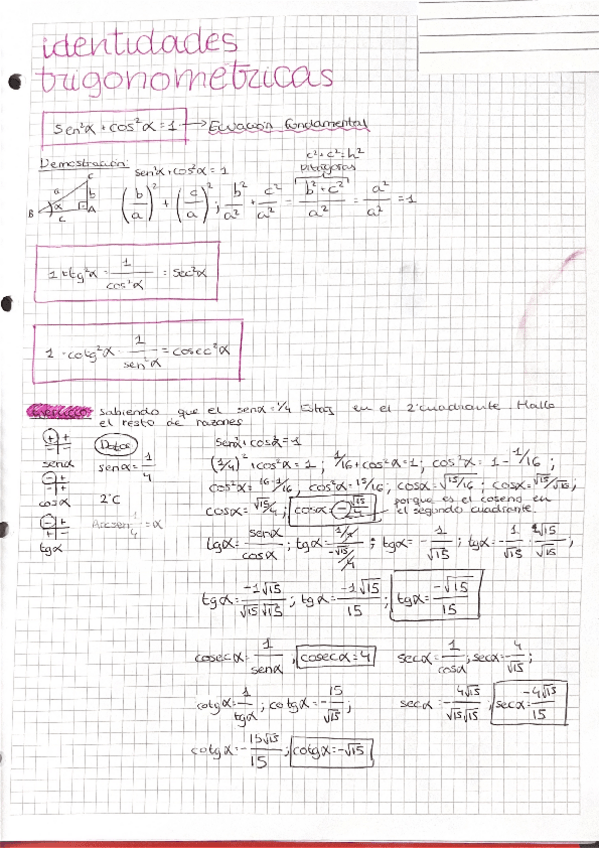 identidades
trigonometricas
sen²α + cos²α = 1 → Ecuación fundamental
Demostración: sen²α + cos²α = 1
c² + c² = h²
Pitágoras
(b/a)² + (c/a)² ; b²/a² + c²/a² = b² + c²/a² = a²/a² = 1
B a C b A c α
1 + tg²α = 1/cos²α = sec²α
1 + cotg²α = 1/sen²α = cosec²α
Sabiendo que el senα = 1/4 Estas en el 2ºcuadrante. Halla
el resto de razones
Datos
senα = 1/4
2ºC
Arcsen 1/4 = α
senα
cosα
tgα
sen²α + cos²α = 1
(1/4)² + cos²α = 1 ; 1/16 + cos²α = 1 ; cos²α = 1 - 1/16 ;
cos²α = 16-1/16 ; cos²α = 15/16 ; cosα = √15/16 ; cosα = √15/√16 ;
cosα = √15/4 ; cosα = -√15/4 porque es el coseno en
el segundo cuadrante.
tgα = senα/cosα ; tgα = 1/4/-√15/4 ; tgα = -1/√15 ; tgα = -1/√15 · √15/√15 ;
tgα = -1√15/√15 √15 ; tgα = -1√15/15 ; tgα = -√15/15
cosecα = 1/senα , cosecα = 4 secα = 1/cosα ; secα = 4/√15 ;
cotgα = 1/tgα ; cotgα = -15/√15 ; secα = -4√15/√15√15 ; secα = -4√15/15
cotgα = -15√15/15 ; cotgα = -√15